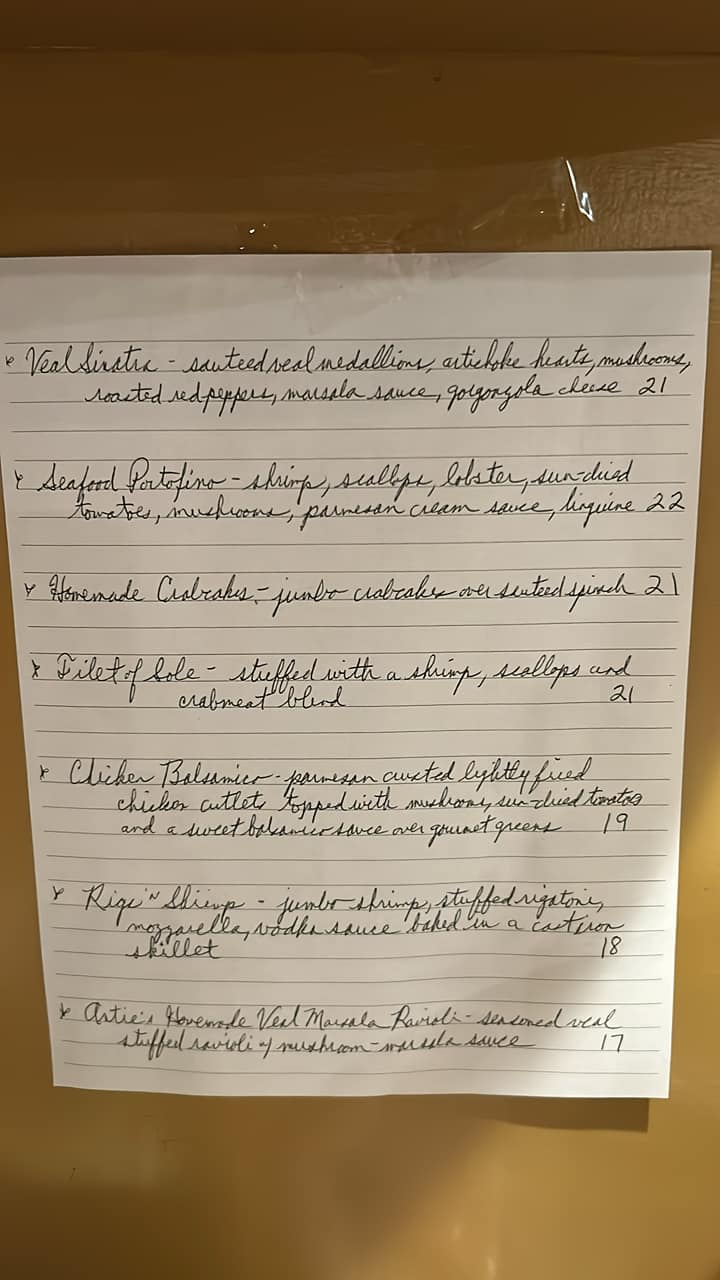 Veal Sinatra - sauteed veal medallions, artichoke hearts, mushrooms,
roasted red peppers, marsala sauce, gorgonzola cheese 21
Seafood Portofino - shrimp, scallops, lobster, sun-dried
tomatoes, mushrooms, parmesan cream sauce, linguine 22
Homemade Crabcakes - jumbo crabcakes over sauteed spinach 21
Filet of Sole - stuffed with a shrimp, scallops and
crabmeat blend 21
Chicken Balsamico - parmesan crusted lightly fried
chicken cutlets topped with mushrooms, sun-dried tomatoes
and a sweet balsamico sauce over gourmet greens 19
Rigi 'N Shrimp - jumbo shrimp, stuffed rigatoni,
mozzarella, vodka sauce baked in a cast iron
skillet 18
Artie's Homemade Veal Marsala Ravioli - seasoned veal
stuffed ravioli w/ mushroom-marsala sauce 17